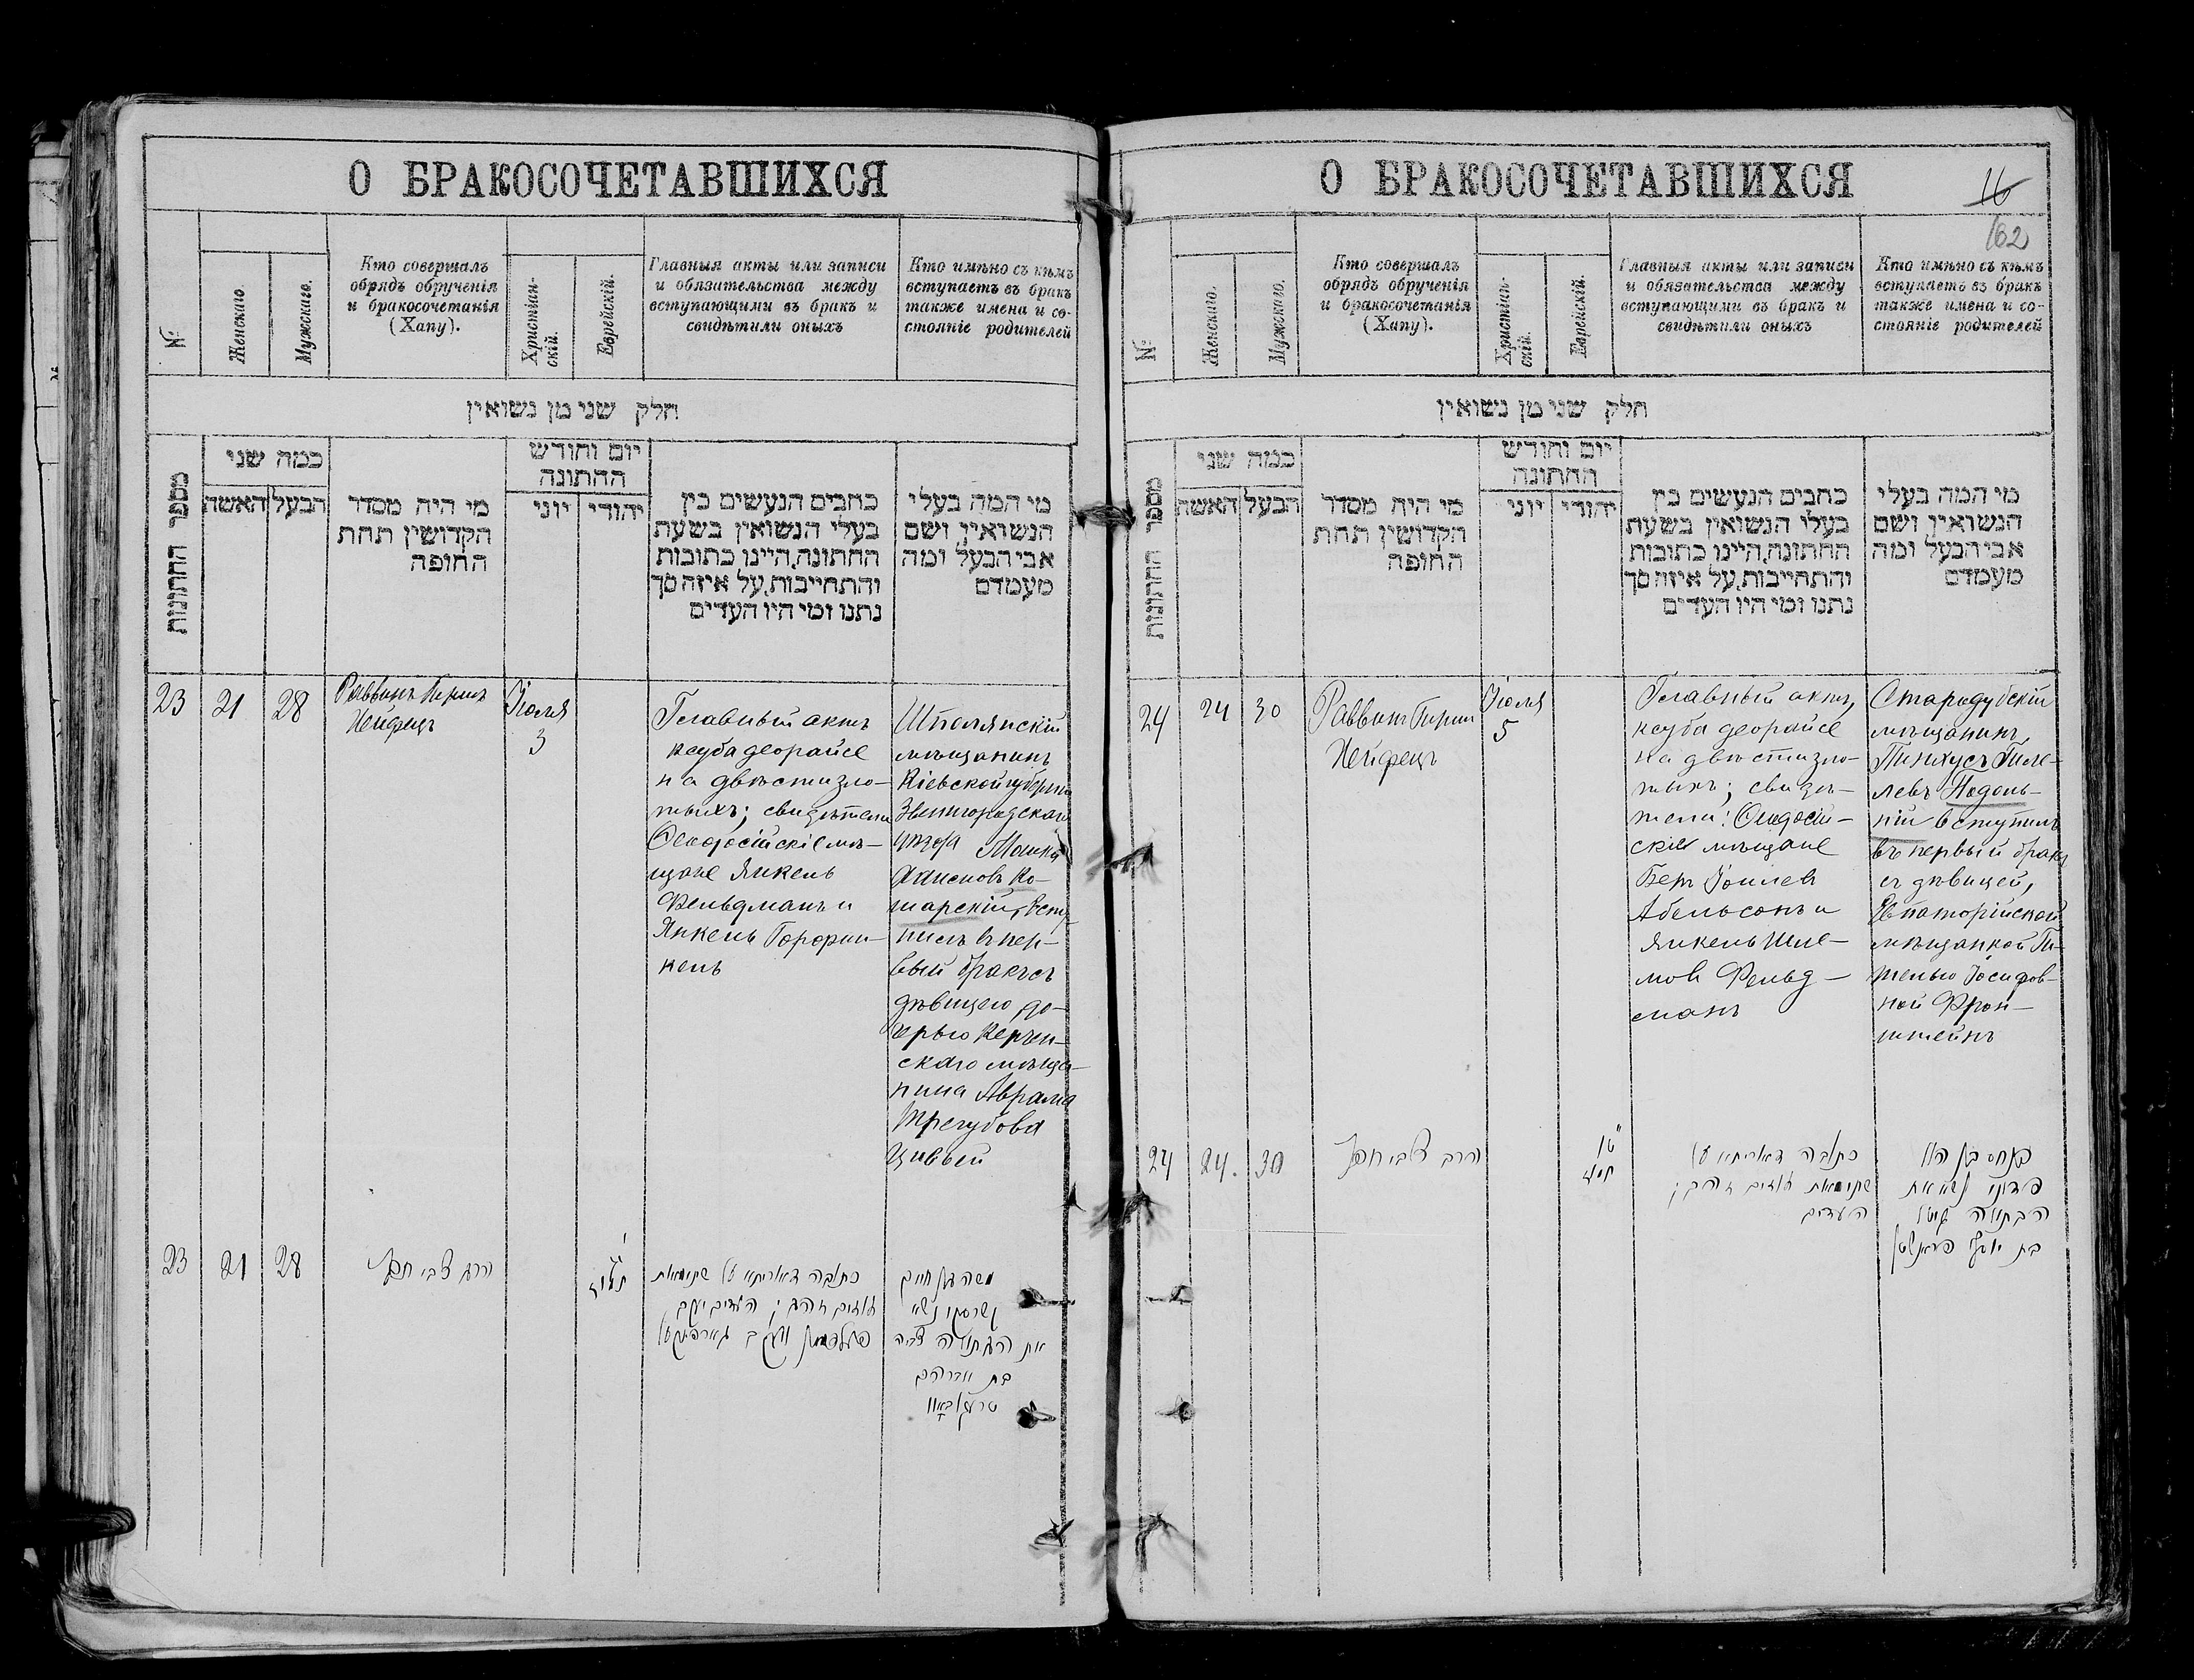 О БРАКОСОЧЕТАВШИХСЯ
№
Женскаго.
Мужскаго.
Кто совершалъ
обрядъ обрученія
и бракосочетанія
(Хапу).
Христіан-
скій.
Еврейскій.
Главныя акты или записи
и обязательства между
вступающими въ бракъ и
свидѣтили оныхъ
Кто имѣно съ кѣмъ
вступаетъ въ бракъ
также имена и со-
стояніе родителей
חלק שני מן נשואין
מספר החתונות
כמה שני
האשה
הבעל
מי היה מסדר
הקדושין תחת
החופה
יום וחודש
החתונה
יוני
יהודי
כתבים הנעשים בין
בעלי הנשואין בשעת
החתונה,היינו כתובות
והתחייבות,על איזה סך
נתנו ומי היו העדים
מי המה בעלי
הנשואין ושם
אבי הבעל ומה
מעמדם
23
21
28
Раввинъ Гиршъ
Хейфецъ
Іюля
3
Главный актъ
ксуба деорайсе
на двѣсти зло-
тыхъ; свидѣтели
Ѳеодосійскіе мѣ-
щане Янкель
Фельдманъ и
Янкель Горфин-
кель
Шполянскій
мѣщанинъ
Кіевской губерніи
Звенигородскаго
уѣзда Мошка
Ко-
шарскій, всту-
пилъ въ пер-
вый бракъ съ
дѣвицею до-
черью Керчен-
скаго мѣща-
нина Аврама
Трегубова
Цивьей
23
21
28
הרב צבי חפץ
י
תמוז
כתובה דאוריתא על שתי מאות
זהובים ; העדים יעקב
פעלדמאן ויעקב גארפינקעל
משה בן חיים
קשרסקי נשא
את הבתולה צביה
בת אברהם
טרעגובאוו
О БРАКОСОЧЕТАВШИХСЯ
16
162
№
Женскаго.
Мужскаго.
Кто совершалъ
обрядъ обрученія
и бракосочетанія
(Хапу).
Христіан-
скій.
Еврейскій.
Главныя акты или записи
и обязательства между
вступающими въ бракъ и
свидѣтили оныхъ
Кто имѣно съ кѣмъ
вступаетъ въ бракъ
также имена и со-
стояніе родителей
חלק שני מן נשואין
מספר החתונות
כמה שני
האשה
הבעל
מי היה מסדר
הקדושין תחת
החופה
יום וחודש
החתונה
יוני
יהודי
כתבים הנעשים בין
בעלי הנשואין בשעת
החתונה,היינו כתובות
והתחייבות,על איזה סך
נתנו ומי היו העדים
מי המה בעלי
הנשואין ושם
אבי הבעל ומה
מעמדם
24
24
30
Раввинъ Гирш
Хейфецъ
Іюля
5
Главный актъ,
ксуба деорайсе
на двѣсти зло-
тыхъ; свидѣ-
тели: Ѳеодосій-
скіе мѣщане
Беръ Іоилев
Абельсонъ и
Янкель Шле-
мов Фельд-
манъ
Стародубскій
мѣщанинъ,
Пинхусъ Гиле-
левъ Подоль-
ній вступилъ
въ первый бракъ
съ дѣвицей,
Евпаторійской
мѣщанкой Ги-
телью Іосифов-
ной Фрон-
штейнъ
24
24.
30
הרב צבי חפץ
תמוז
כתובה דאוריתא על
שתי מאות זהובים ;
העדים
פנחס בן הלל
נשא את
הבתולה גיטל
בת יוסף